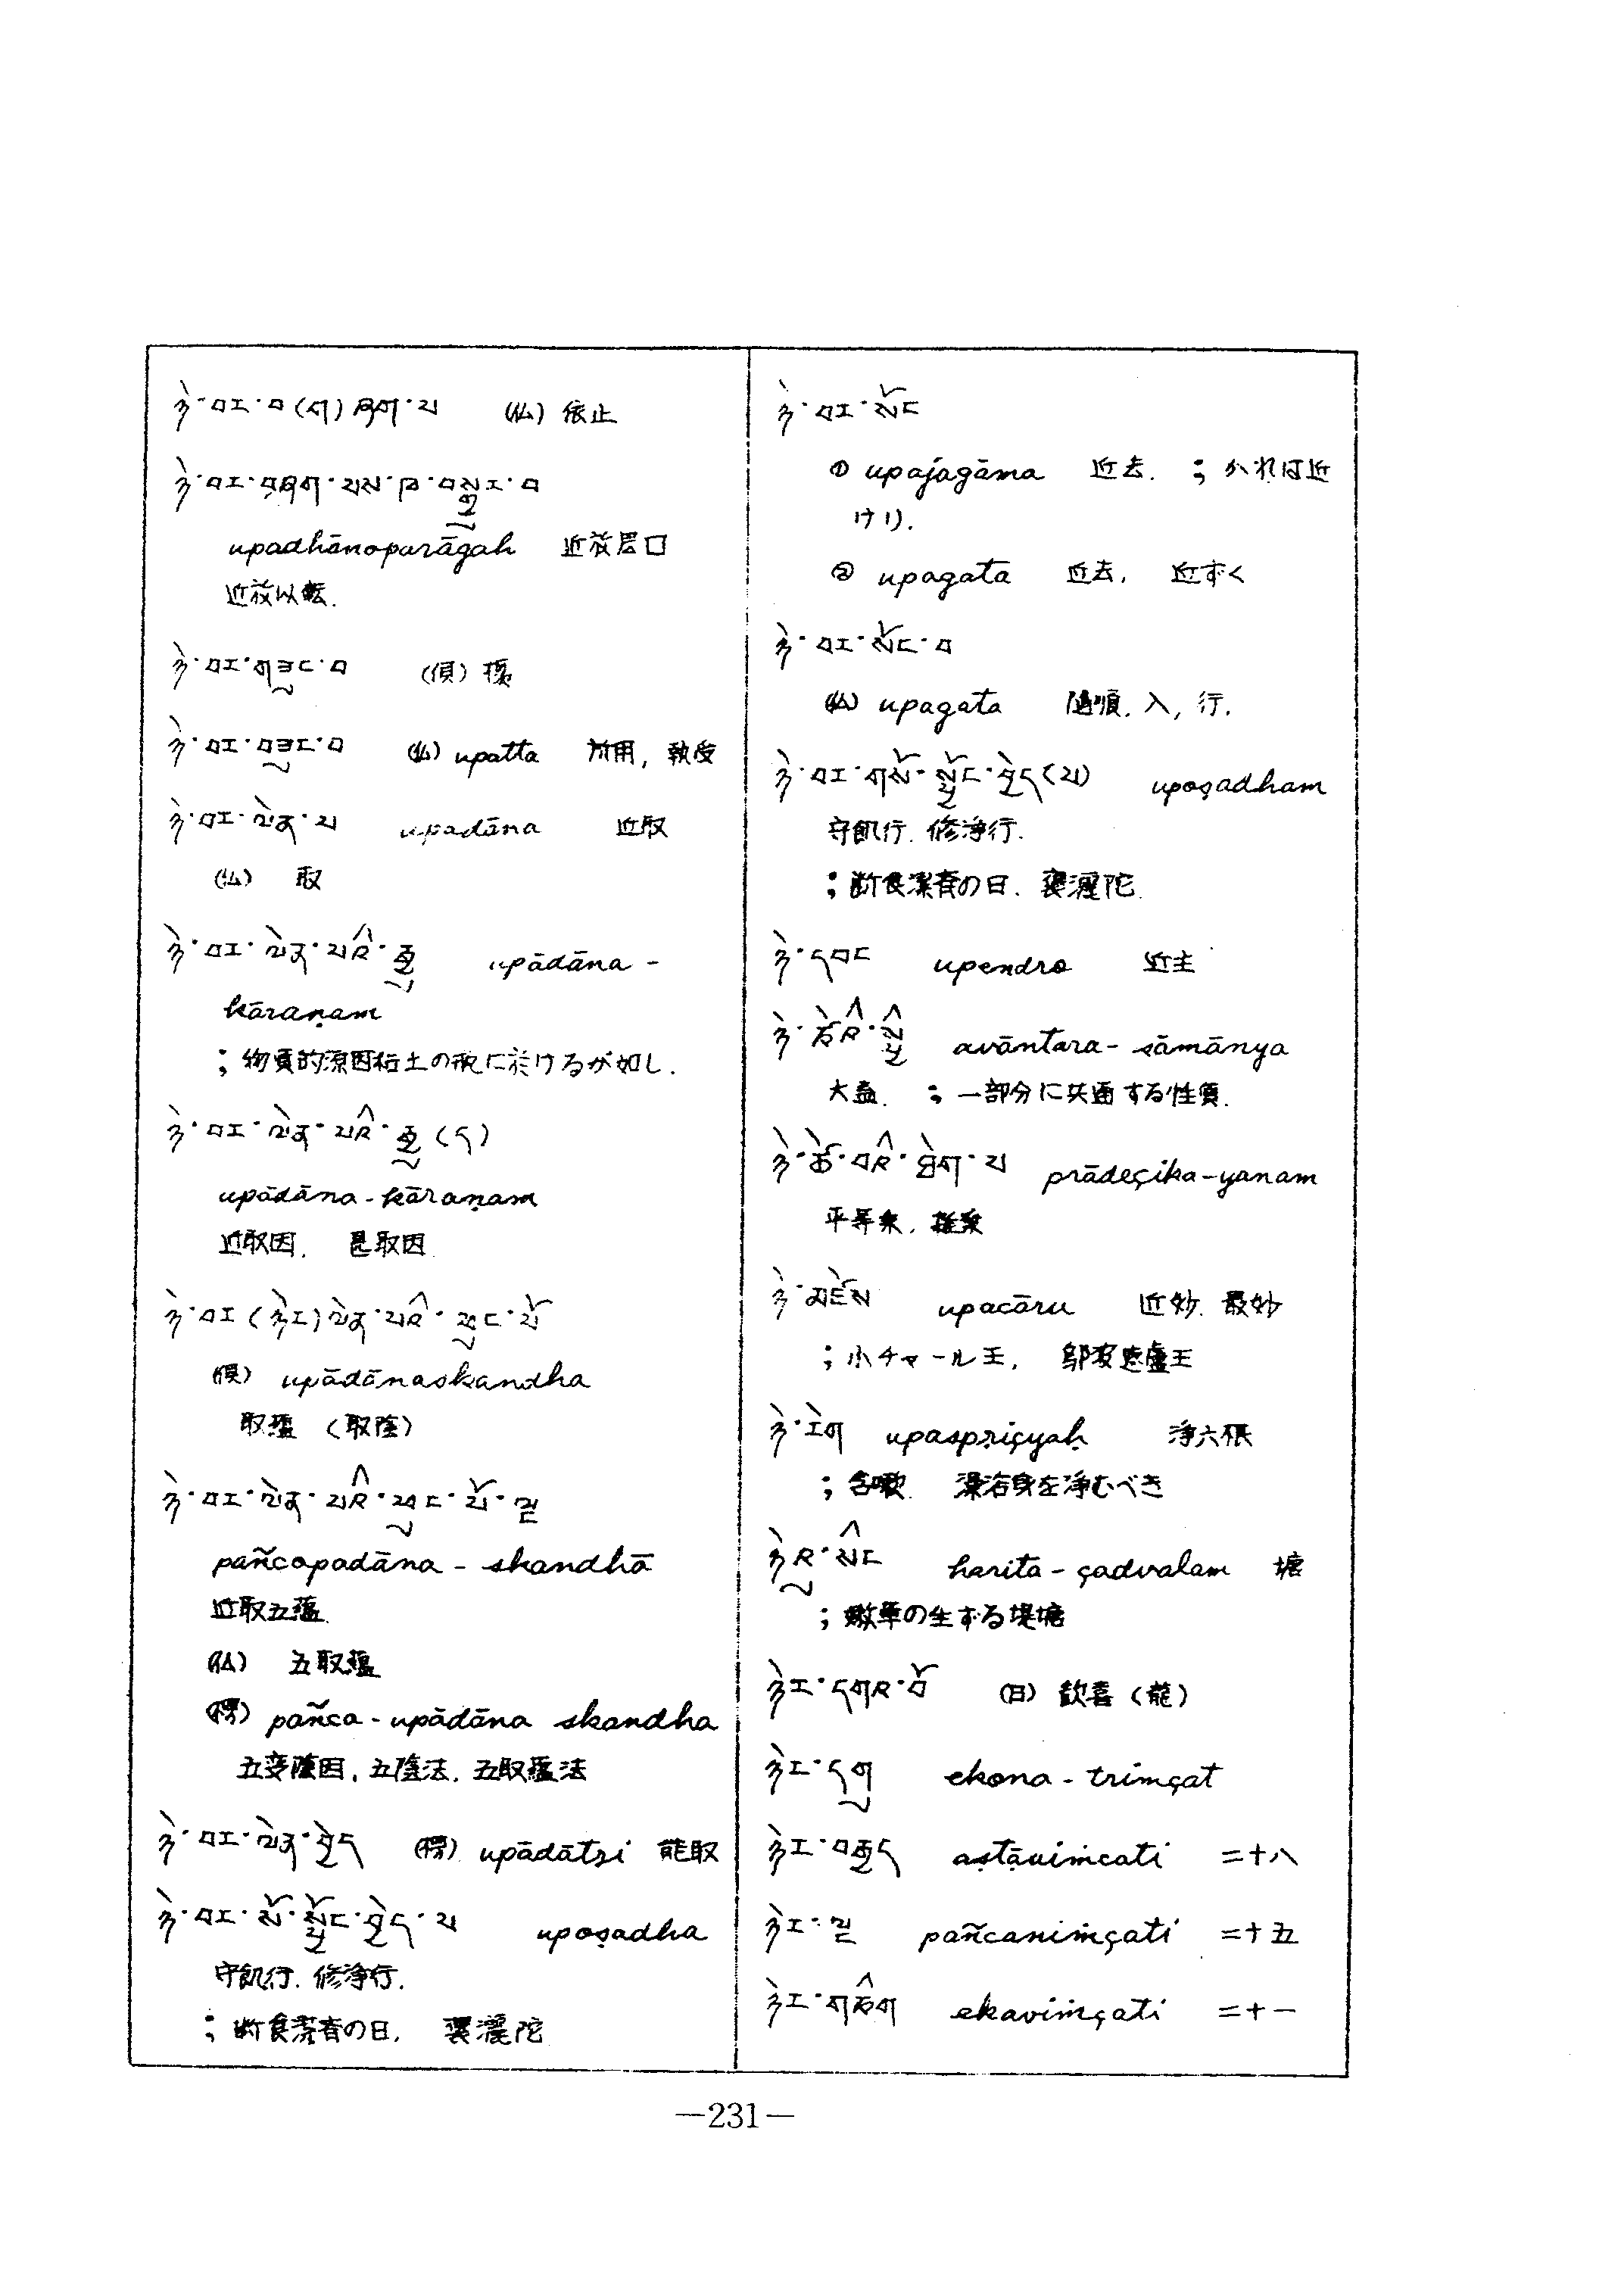 ཉེ་བར་བ(ག)ཞག་པ (仏) 依止
ཉེ་བར་བཞག་པས་ཁ་བསྒྱུར་བ
upadhānoparāgaḥ 近放居口
近放以転.
ཉེ་བར་གཟུང་བ
ཉེ་བར་བཟུང་བ (仏) upatta 所用, 執受
ཉེ་བར་ལེན་པ upadāna 近取
(仏) 取
ཉེ་བར་ལེན་པའི་རྒྱུ upādāna -
kāraṇam
; 物質的原因粘土の瓶に於けるが如し.
ཉེ་བར་ལེན་པའི་རྒྱུ (ད)
upādāna - kāraṇam
近取因. 是取因
ཉེ་བར (ཉེར) ལེན་པའི་ཕུང་པོ
upādānaskandha
取蘊 (取陰)
ཉེ་བར་ལེན་པའི་ཕུང་པོ་ལྔ
pañcopadāna - skandhā
近取五蘊.
(仏) 五取蘊
(梵) pañca - upādāna skandha
五受陰因, 五陰法, 五取蘊法
ཉེ་བར་ལེན་བྱེད (梵) upādātṛi 能取
ཉེ་བར་སོ་སྦྱོང་བྱེད་པ upoṣadha
守飢行. 修浄行.
; 断食潔斎の日, 褒灑陀
ཉེ་བར་སོང
① upajagāma 近去. ; かれは近
けり.
② upagata 近去, 近ずく
ཉེ་བར་སོང་བ
(仏) upagata 随順. 入, 行.
ཉེ་བར་གསོ་སྦྱོང་བྱེད(པ) upoṣadham
守飢行. 修浄行.
; 断食潔斎の日. 褒灑陀.
ཉེ་དབང upendro 近主
ཉེ་ཚེའི་སྤྱི avāntara - sāmānya
大益. ; 一部分に共通する性質.
ཉེ་ཚེ་བའི་ཐེག་པ prādeçika - yanam
ཉེ་མཛེས upacāru 近妙. 最妙
; 小チャール王,
ཉེ་རེག upaspṛiçyaḥ 浄六根
; 含嗽. 澡浴身を浄むべき
harita - çadvalam 塘
; 嫩草の生ずる堤塘
ཉེར་དགའ་བོ (日) 歓喜 (龍)
ཉེར་དགུ ekona - trimçat
ཉེར་བརྒྱད aṣṭāviṁcati 二十八
ཉེར་ལྔ pañcaniṁçati 二十五
ཉེར་གཅིག ekaviṁçati 二十一
—231—